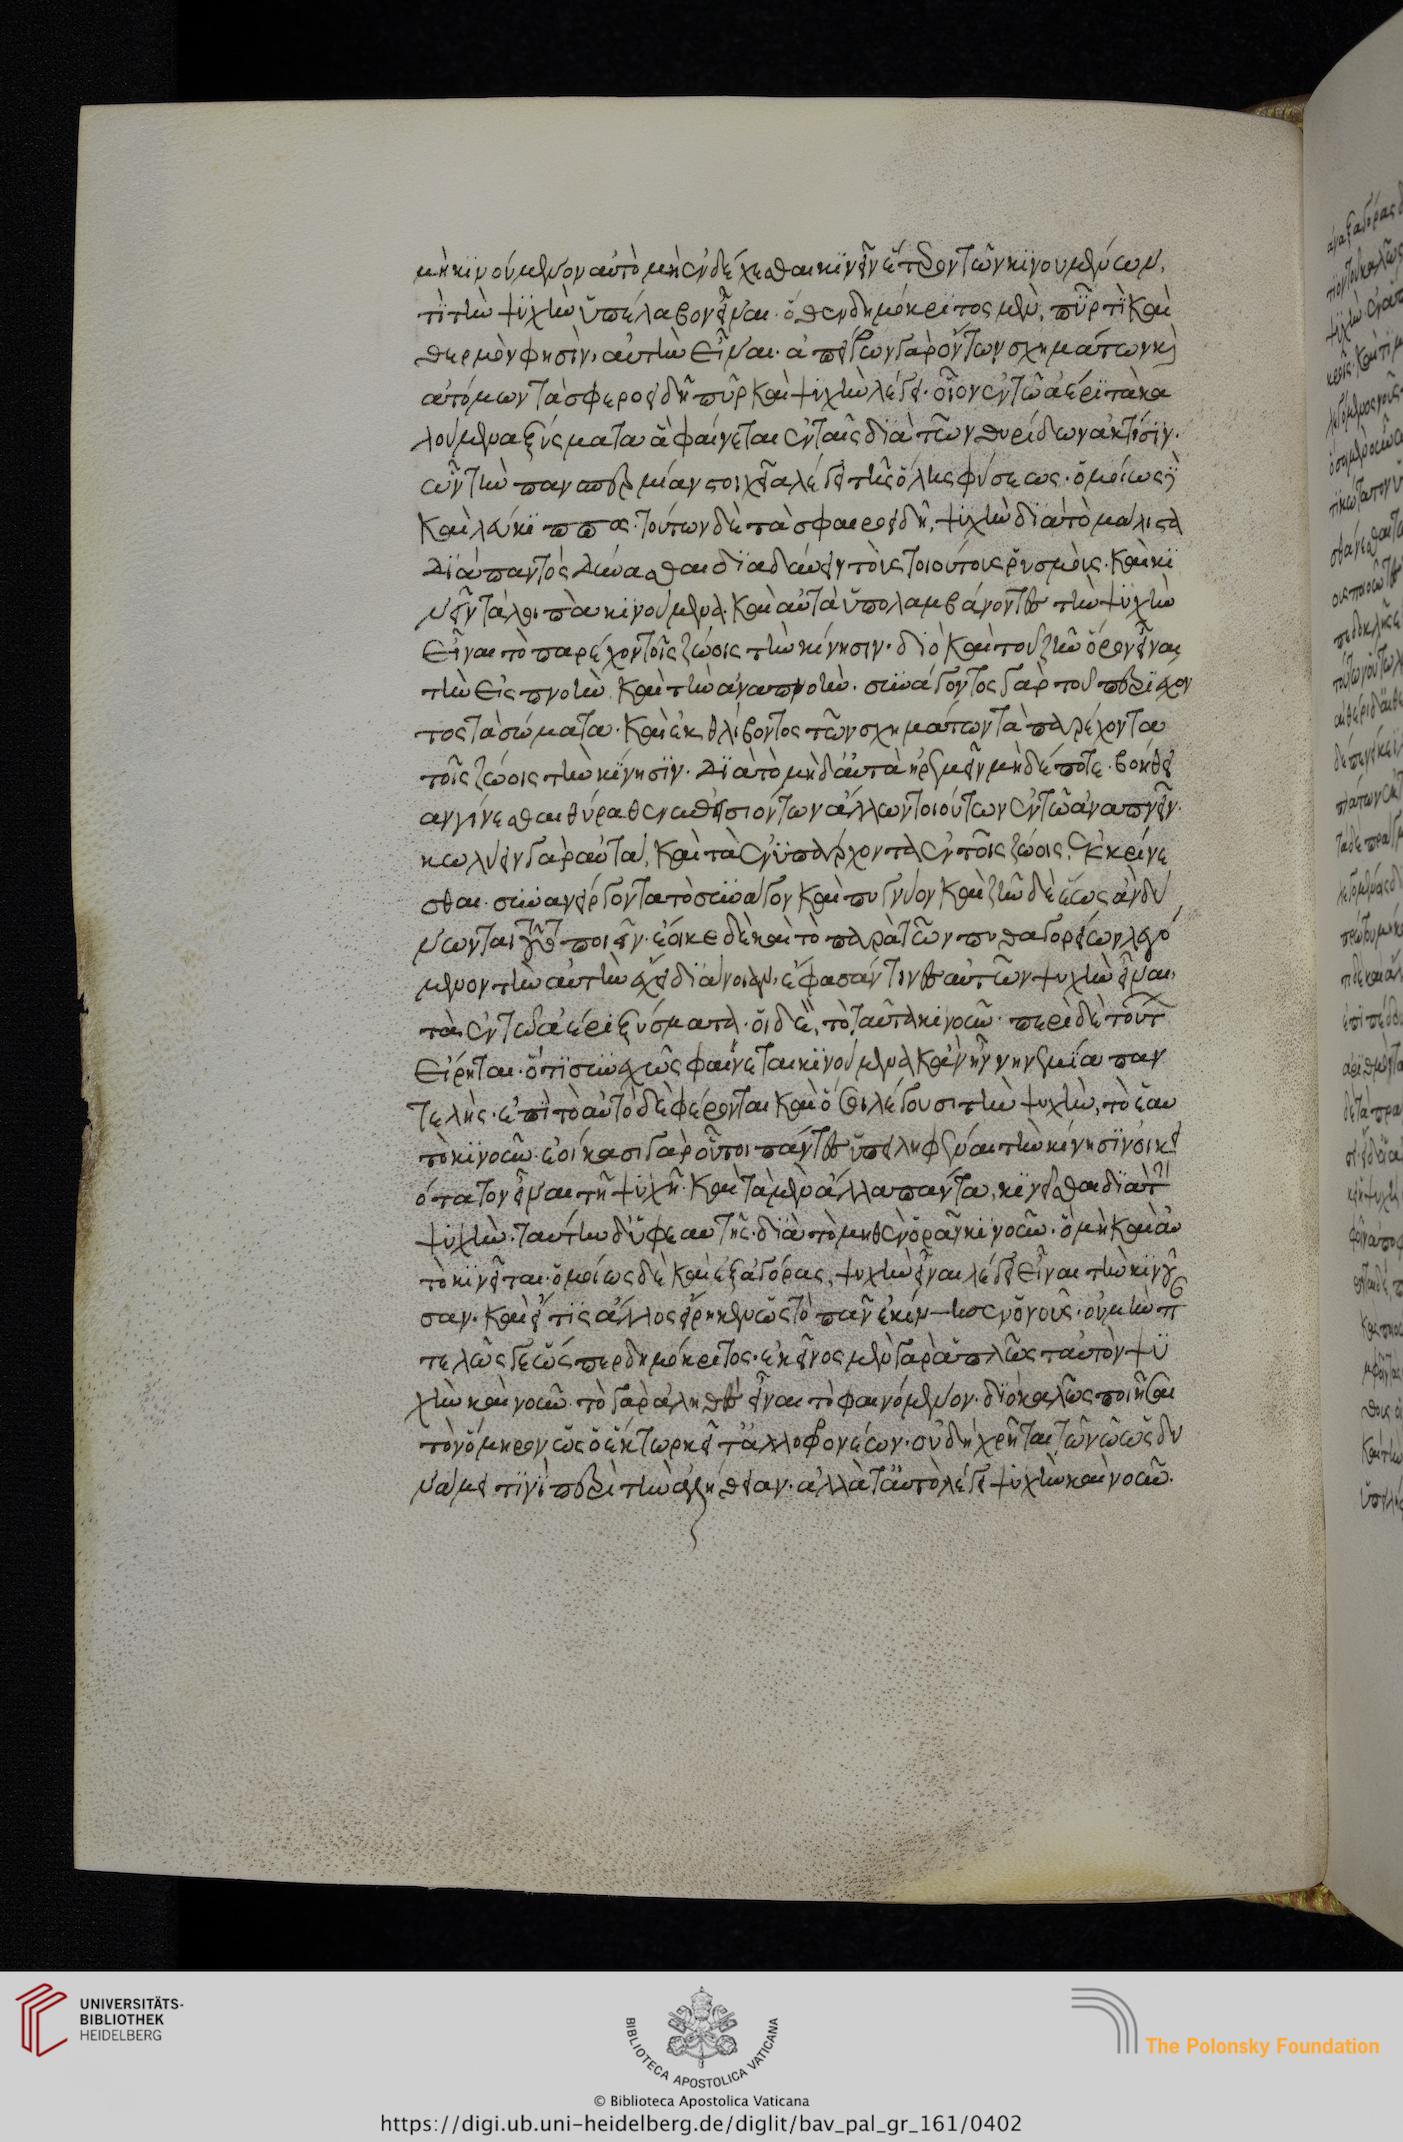 μὴ κινούμενον αὐτὸ μὴ ἐνδέχεσθαι κινεῖν ἕτερον τῶν κινουμένων.
τὶ τὴν ψυχὴν ὑπέλαβον εἶναι. ὅθεν δημόκριτος μὲν, πῦρ τὶ καὶ
θερμὸν φησὶν, αὐτὴν εἶναι. ἀπείρων γὰρ ὄντων σχημάτων καὶ
ἀτόμων τὰ σφεροειδῆ πῦρ καὶ ψυχὴν λέγει. οἷον ἐν τῶ ἀέρι τὰ κα
λούμενα ξύσματα ἃ φαίνεται ἐν ταῖς διὰ τῶν θυρίδων ἀκτίσιν.
ὧν τὴν πανσπερμίαν στοιχεῖα λέγει τῆς ὅλης φύσεως. ὁμοίως
καὶ λεύκιππος. τούτων δὲ τὰ σφαιροειδῆ, ψυχὴν διὰ τὸ μάλιστα
διὰ παντὸς δύνασθαι διαδύνειν τοῖς τοιούτοις ῥυσμοῖς. καὶ κι
νεῖν τὰ λοιπὰ κινούμενα. καὶ αὐτὰ ὑπολαμβάνοντες τὴν ψυχὴν
εἶναι τὸ παρέχον τοῖς ζώοις τὴν κίνησιν. διὸ καὶ τοῦ ζῆν ὅρον εἶναι
τὴν εἰσπνοὴν καὶ τὴν ἀναπνοὴν. συνάγοντος γὰρ τοῦ περιέχον
τος τὰ σώματα. καὶ ἐκθλίβοντος τῶν σχημάτων τὰ παρέχοντα
τοῖς ζώοις τὴν κίνησιν. διὰ τὸ μὴδ' αὐτὰ ἠρεμεῖν μηδέποτε. βοήθει
αν γίνεσθαι θύραθεν ἐπεισιόντων ἄλλων τοιούτων ἐν τῶ ἀναπνεῖν.
κωλύειν γὰρ αὐτὰ, καὶ τὰ ἐνυπάρχοντα ἐν τοῖς ζώοις, ἐκκρίνε
σθαι. συνανείργοντα τὸ συνάγον καὶ πυγνύον καὶ ζῆν δὲ ἕως ἂν δύ
νωνται τοῦτο ποιεῖν. ἔοικε δὲ καὶ τὸ παρὰ τῶν πυθαγορείων λεγό
μενον τὴν αὐτὴν ἔχει διάνοιαν. ἔφασάν τινες αὐτῶν ψυχὴν εἶναι,
τὰ ἐν τῶ ἀέρι ξύσματα. οἱ δὲ, τὸ ταῦτα κινοῦν. περὶ δὲ τούτων
εἴρηται. ὅτι συνεχῶς φαίνεται κινούμενα κἂν ἦν νηνεμία παν
τελής. ἐπὶ τὸ αὐτὸ δὲ φέρονται καὶ ὅσοι λέγουσι τὴν ψυχὴν, τὸ ἑαυ
τὸ κινοῦν. ἐοίκασι γὰρ οὗτοι πάντες ὑπειληφέναι τὴν κίνησιν οἰκει
ότατον εἶναι τῆ ψυχῆ. καὶ τὰ μὲν ἄλλα πάντα, κινεῖσθαι διὰ τὴν
ψυχὴν. ταύτην δ' ὑφ' ἑαυτῆς. διὰ τὸ μηθὲν ὁρᾶν κινοῦν. ὃ μὴ καὶ αὐ
τὸ κινεῖται. ὁμοίως δὲ καὶ ἀναξαγόρας, ψυχὴν εἶναι λέγει εἶναι τὴν κινή
σαν. καὶ εἴ τις ἄλλος εἴρηκεν ὡς τὸ πᾶν ἐκίνησεν ὁ νοῦς. οὐ μὴν π
τελῶς γε ὥσπερ δημόκριτος. ἐκεῖνος μὲν γὰρ ἁπλῶς ταὐτὸν ψυ
χὴν καὶ νοῦν. τὸ γὰρ ἀληθὲς εἶναι τὸ φαινόμενον. διὸ καλῶς ποιῆσαι
τὸν ὅμηρον ὡς ὁ ἕκτωρ κεῖτ' ἀλλοφρονέων. οὐ δὴ χρῆται τῶ νῶ ὡς δυ
νάμει τινὶ περὶ τὴν ἀλήθειαν. ἀλλὰ ταὐτὸ λέγει ψυχὴν καὶ νοῦν.
UNIVERSITÄTS-
BIBLIOTHEK
HEIDELBERG
BIBLIOTECA APOSTOLICA VATICANA
The Polonsky Foundation
© Biblioteca Apostolica Vaticana
https://digi.ub.uni-heidelberg.de/diglit/bav_pal_gr_161/0402